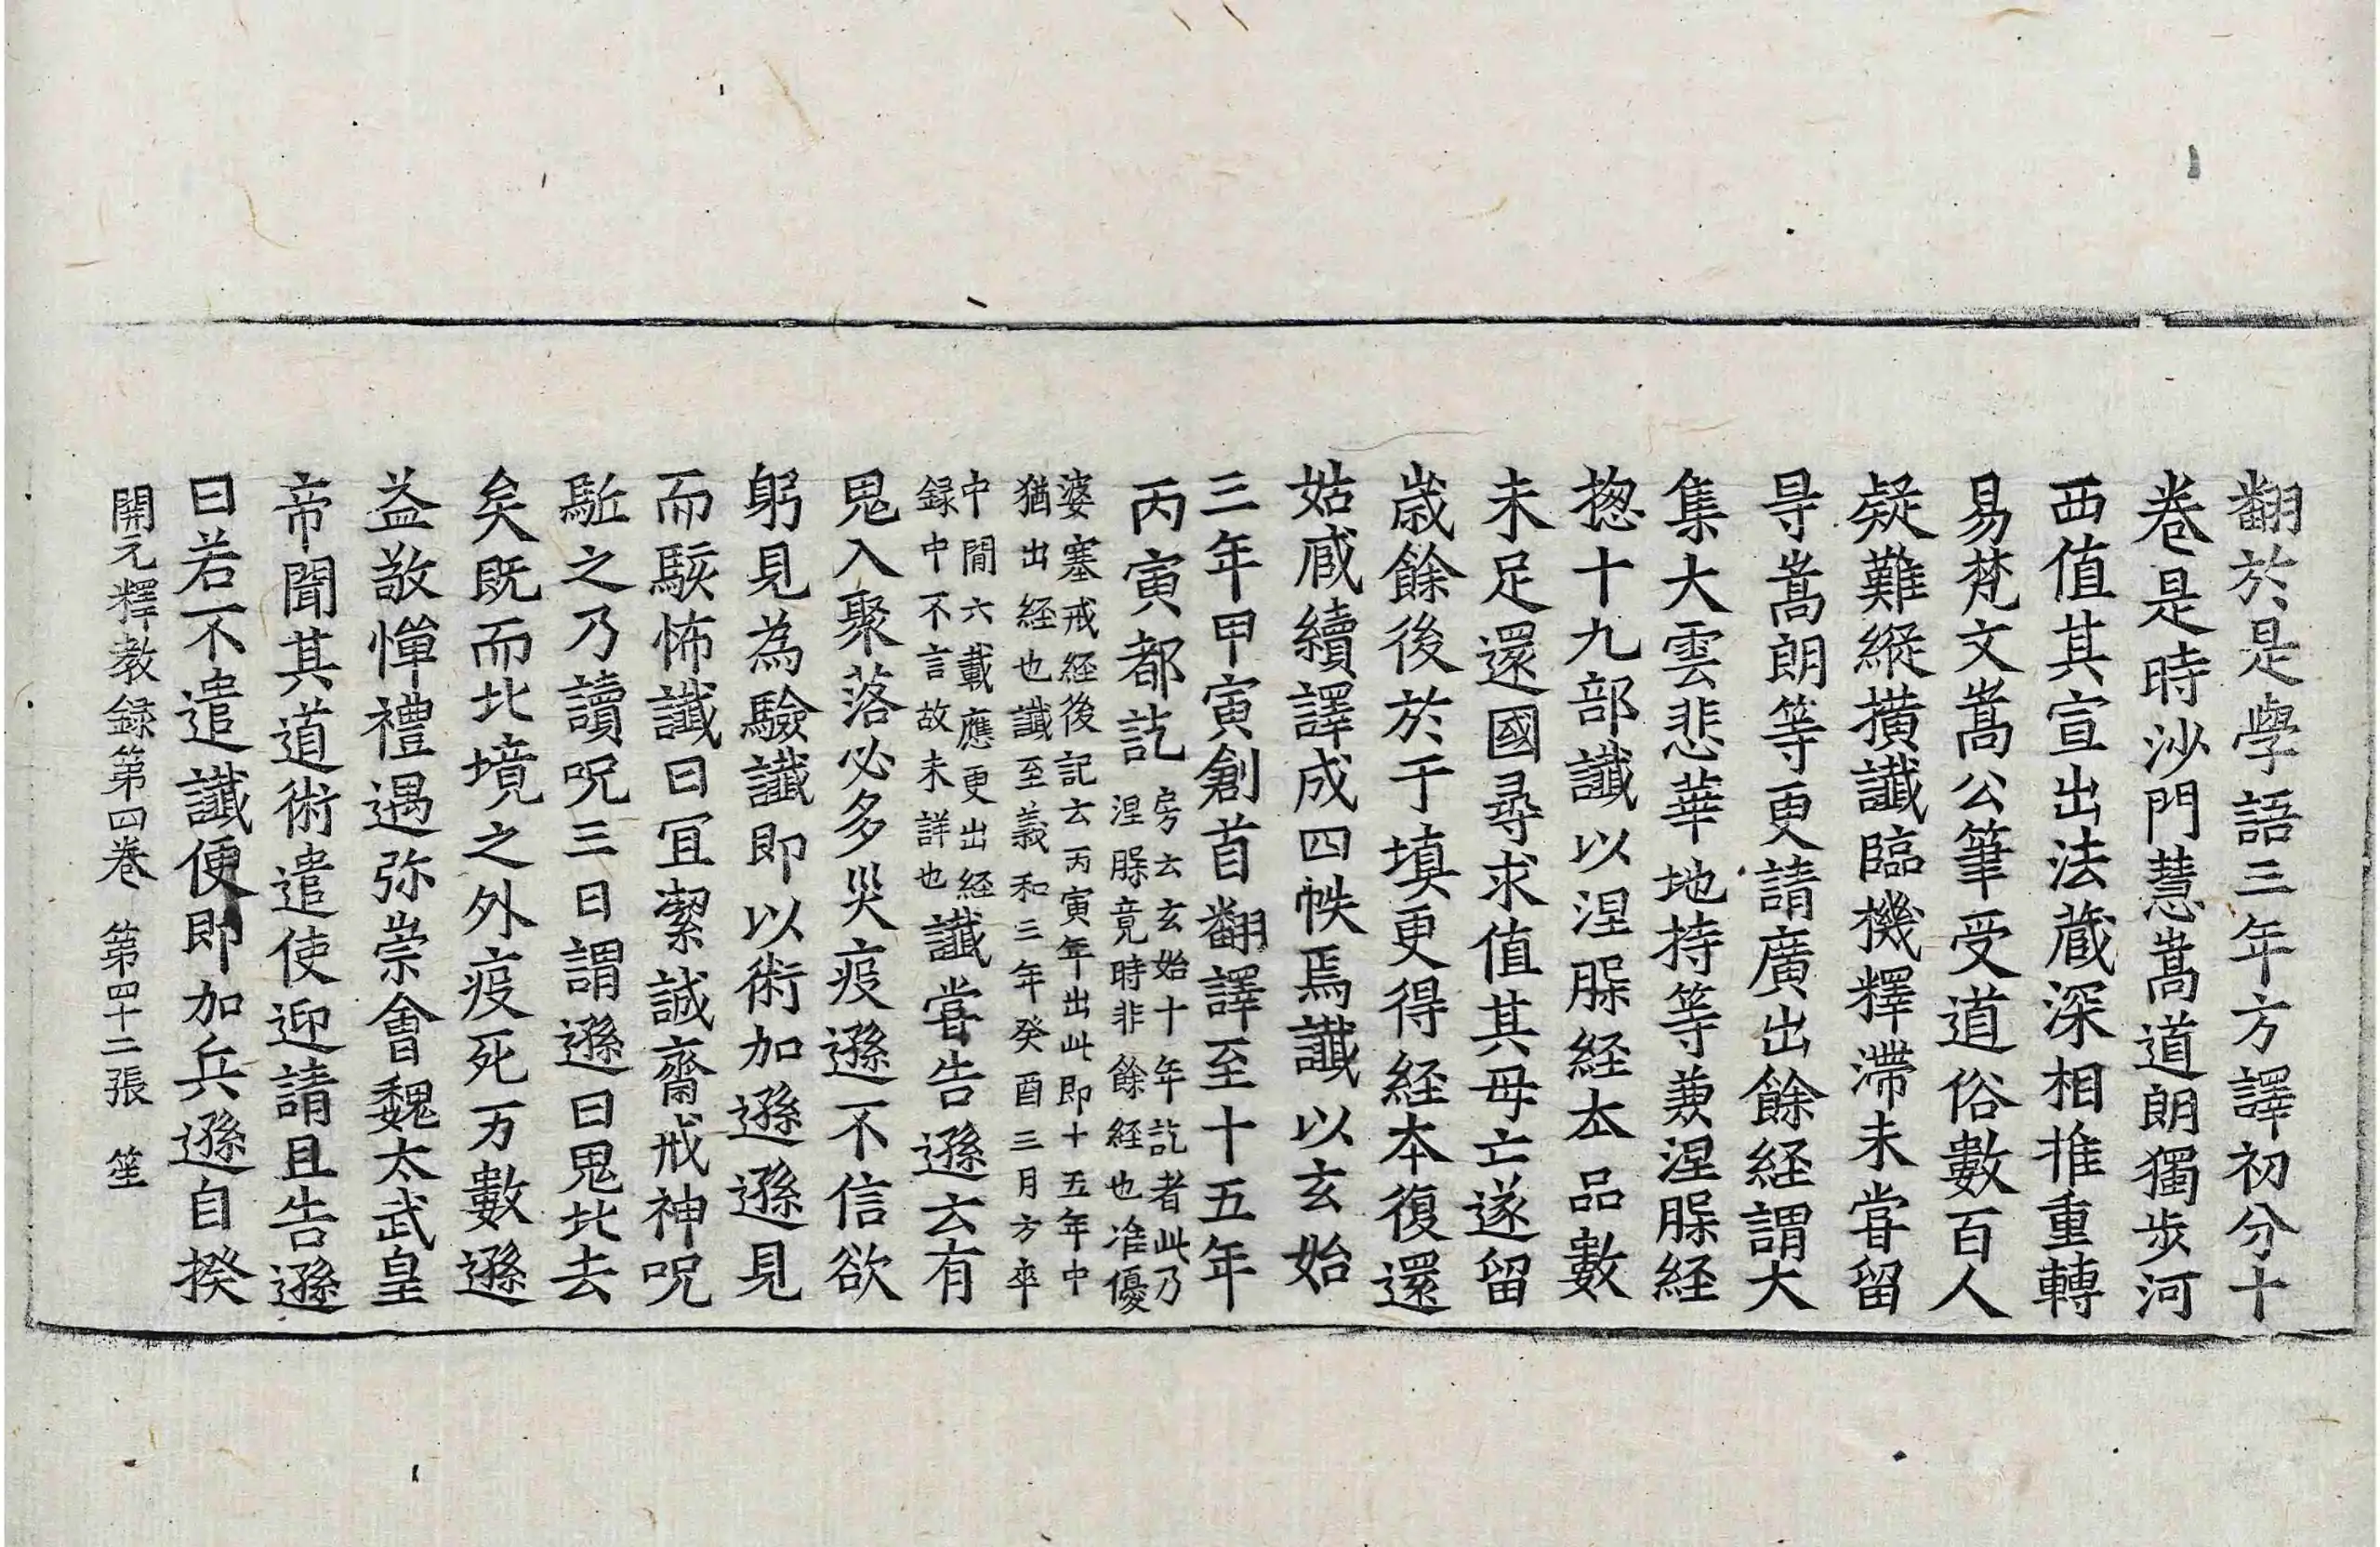 翻於是學語三年方譯初分十
卷是時沙門慧嵩道朗獨步河
西值其宣出法蔵深相推重轉
易梵文嵩公筆受道俗數百人
疑難縱撗讖臨機釋滯未甞留
㝵嵩朗等更請廣出餘経謂大
集大雲悲華地持等萰涅槃経
揔十九部讖以涅槃経夲品數
未足還國尋求值其母亡遂留
歳餘後於于填更得経夲復還
姑臧續譯成四帙焉讖以玄始
三年甲寅創首翻譯至十五年
丙寅都訖房云玄始十年訖者此乃
涅槃竟時非餘経也准優
婆塞戒経後記云丙寅年出此即十五年中
猶出経也讖至義和三年癸酉三月方卒
中間六載應更出経
録中不言故未詳也讖甞告遜云有
鬼入聚落必多灾疫遜不信欲
躬見為驗讖即以術加遜遜見
而駭怖讖曰冝潔誠齋戒神呪
駈之乃讀呪三日謂遜曰鬼北去
矣既而北境之外疫死万數遜
益敬憚禮遇弥崇會魏太武皇
帝聞其道術遣使迎請且告遜
曰若不遣讖便即加兵遜自揆
開元釋教録第四卷 第四十二張 笙